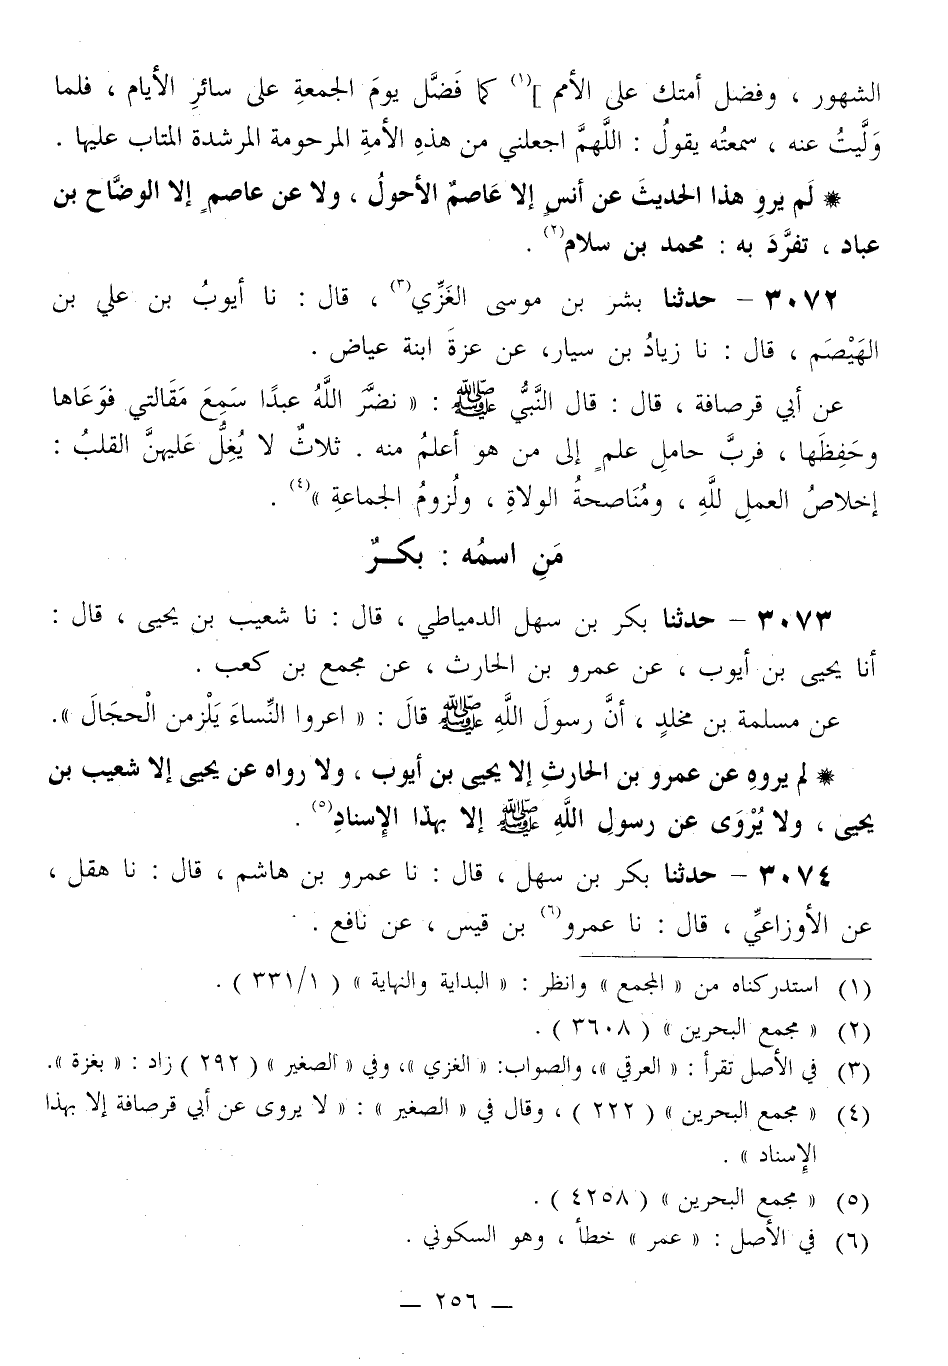 الشهور ، وفضل أمتك على الأمم ](١) كما فَضَّل يومَ الجمعةِ على سائرِ الأيام ، فلما
وَلَّيتُ عنه ، سمعتُه يقولُ : اللَّهمَّ اجعلني من هذهِ الأمةِ المرحومة المرشدة المتاب عليها .
* لَم يروِ هذا الحديثَ عن أنسٍ إلا عَاصمٌ الأحولُ ، ولا عن عاصمٍ إلا الوضَّاح بن
عباد ، تفرَّدَ به : محمد بن سلام(٢) .
٣٠٧٢ – حدثنا بشر بن موسى الغَزِّي(٣) ، قال : نا أيوبُ بن علي بن
الهَيْصَم ، قال : نا زيادُ بن سيار، عن عزةَ ابنة عياض .
عن أبي قرصافة ، قال : قال النَّبيُّ ﷺ : « نضَّرَ اللَّهُ عبدًا سَمِعَ مَقَالتي فوَعَاها
وحَفِظَها ، فربَّ حاملِ علمٍ إلى من هو أعلمُ منه . ثلاثٌ لا يُغِلُّ عَليهنَّ القلبُ :
إخلاصُ العملِ للَّهِ ، ومُنَاصحةُ الولاةِ ، ولُزومُ الجماعةِ »(٤) .
مَنِ اسمُه : بكـــرٌ
٣٠٧٣ – حدثنا بكر بن سهل الدمياطي ، قال : نا شعيب بن يحيى ، قال :
أنا يحيى بن أيوب ، عن عمرو بن الحارث ، عن مجمع بن كعب .
عن مسلمة بن مخلدٍ ، أنَّ رسولَ اللَّهِ ﷺ قالَ : « اعروا النِّساءَ يَلْزمن الْحجَالَ ».
* لم يروهِ عن عمرو بن الحارثِ إلا يحيى بن أيوب ، ولا رواه عن يحيى إلا شعيب بن
يحيى ، ولا يُرْوَى عن رسولِ اللَّهِ ﷺ إلا بهذا الإسنادِ(٥) .
٣٠٧٤ – حدثنا بكر بن سهل ، قال : نا عمرو بن هاشم ، قال : نا هقل ،
عن الأوزاعيِّ ، قال : نا عمرو(٦) بن قيس ، عن نافع .
(١) استدركناه من « المجمع » وانظر : « البداية والنهاية » ( ٣٣١/١ ) .
(٢) « مجمع البحرين » ( ٣٦٠٨ ) .
(٣) في الأصل تقرأ : « العرقي »، والصواب: « الغزي »، وفي « الصغير » ( ٢٩٢ ) زاد : « بغزة ».
(٤) « مجمع البحرين » ( ٢٢٢ ) ، وقال في « الصغير » : « لا يروى عن أبي قرصافة إلا بهذا
الإسناد » .
(٥) « مجمع البحرين » ( ٤٢٥٨ ) .
(٦) في الأصل : « عمر » خطأ ، وهو السكوني .
— ٢٥٦ —